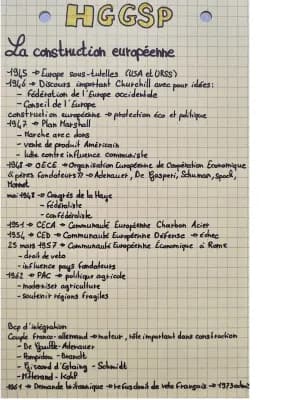 HGGSP
La construction européenne
1945 → Europe sous-tutelles (USA et URSS)
1946 → Discours important Churchill avec pour idées:
- fédération de l'Europe occidentale
- Conseil de l'Europe
construction européenne → protection éco et politique
1947 → Plan Marshall
- Marche avec dons
- vente de produit Américain
- lutte contre influence communiste
1948 → OECE → Organisation Européenne de Coopération Economique
"pères fondateurs" → Adenauer, De Gasperi, Schuman, Spaak,
Monnet
mai 1948 → Congrès de la Haye
- fédéraliste
- confédéraliste
1951 → CECA → Communauté Européenne Charbon Acier
1954 → CED → Communauté Européenne Défense → échec
25 mars 1957 → Communauté Européenne Économique à Rome
- droit de veto
- influence pays fondateurs
1962 → PAC → politique agricole
- moderniser agriculture
- soutenir régions fragiles
Bcp d'intégration
Couple Franco-allemand → moteur, rôle important dans construction
- De Gaulle-Adenauer
- Pompidou - Brandt
- Giscard d'Estaing - Schmidt
- Mitterand - Kohl
1961 → Demande britannique → refus droit de veto Français → 1973 admis